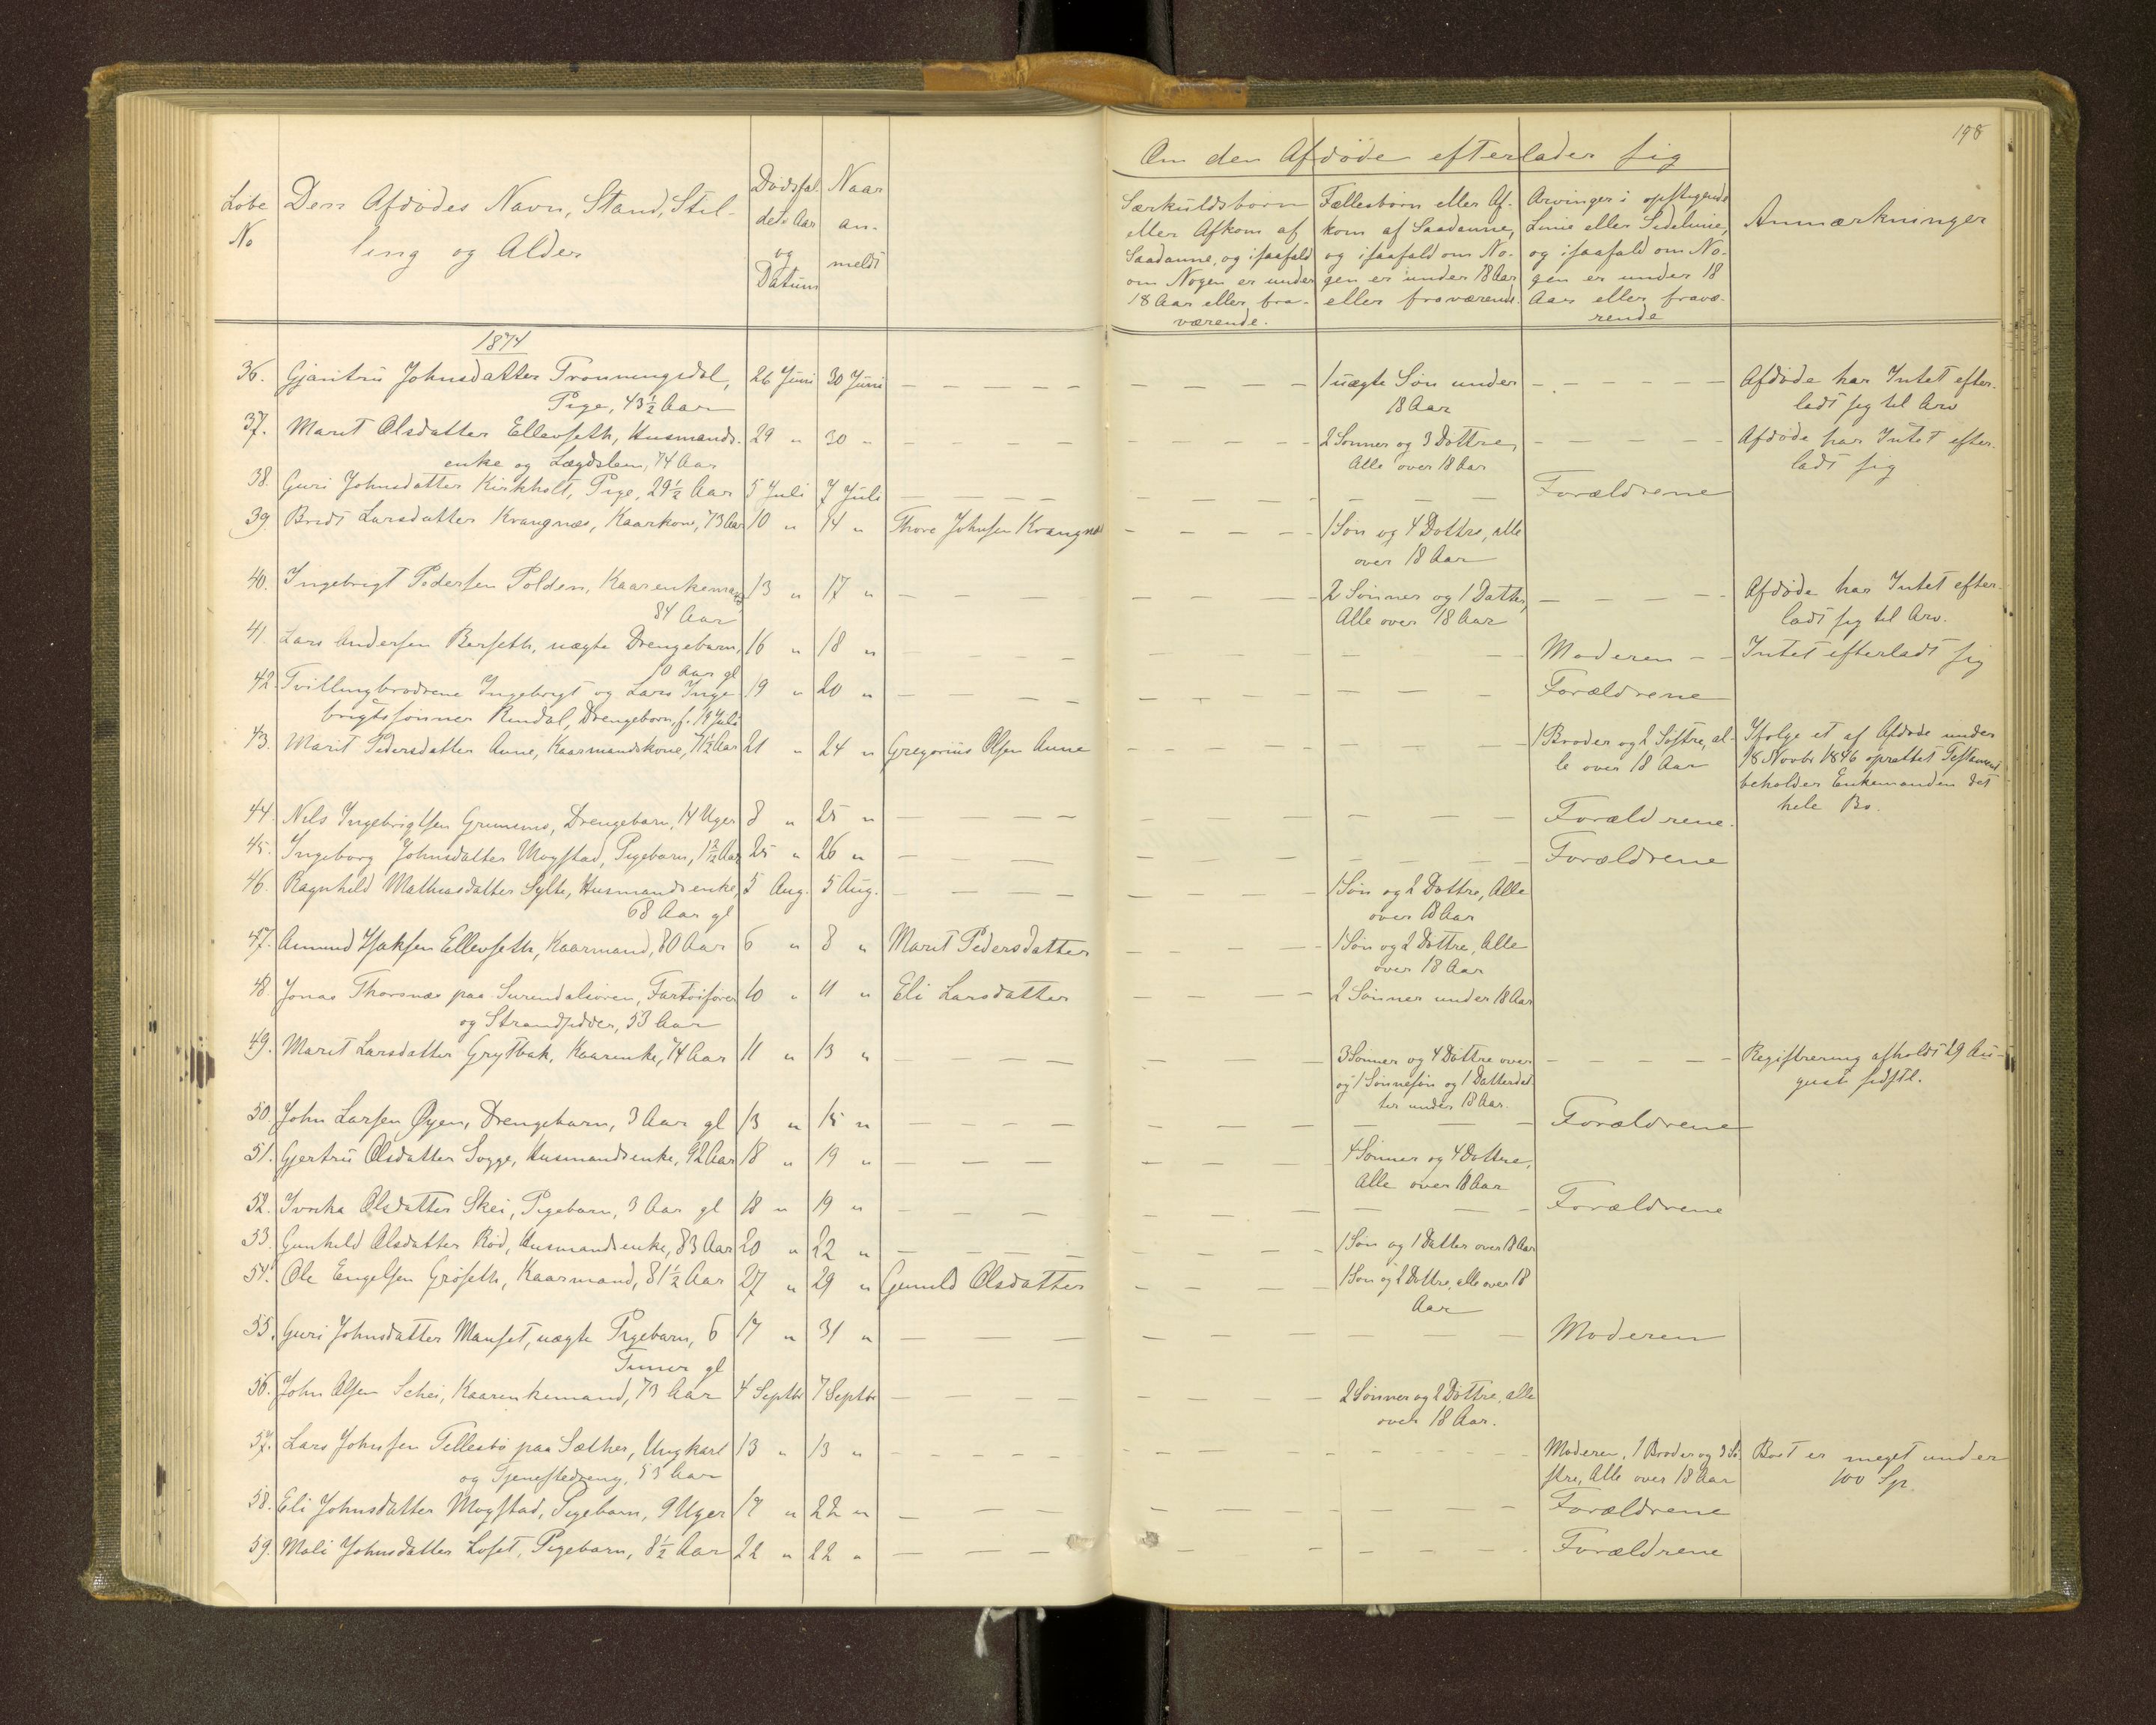 198
Om den Afdøde efterlader sig
Løbe No
Den Afdødes Navn, Stand, Stilling og Alder
Dødsfaldets Aar og Datum
Naar anmeldt
Særkuldsbørn eller Afkom af Saadanne, og isaafald om Nogen er under 18 Aar eller fraværende.
Fællesbørn eller Afkom af Saadanne, og isaafald om Nogen er under 18 Aar eller fraværende.
Arvinger i opstigende Linie eller Sidelinie, og isaafald om Nogen er under 18 Aar eller fraværende
Anmærkninger
1874
36. Gjæritru Johnsdatter Tronningsdal, 26 Juni 30 Juni — — — — — 1 uægte Søn under — — — Afdøde har Intet efter-
Pige, 43½ Aar 18 Aar ladt sig til Arv
37. Marit Olsdatter Ellevseth, Husmands- 29 " 30 " — — — — 2 Sønner og 3 Døttre, — — — Afdøde har Intet efter-
enke og Lægdslem, 74 Aar Alle over 18 Aar ladt sig
38. Guri Johnsdatter Kirkholt, Pige, 29½ Aar 5 Juli 7 Juli — — — — Forældrene
39. Bredt Larsdatter Kvangnæs, Kaarkone, 73 Aar 10 " 14 " Thore Johnsen Kvangnæs — — — 1 Søn og 4 Døttre, alle
over 18 Aar
40. Ingebrigt Pedersen Polden, Kaarenkemand, 13 " 17 " — — — — 2 Sønner og 1 Datter, — — — Afdøde har Intet efter-
84 Aar Alle over 18 Aar ladt sig til Arv.
41. Lars Andersen Berseth, uægte Drengebarn, 16 " 18 " — — — — Moderen — — Intet efterladt sig
10 Aar gl
42. Tvillingbrødrene Ingebrigt og Lars Inge- 19 " 20 " — — — — Forældrene
brigtssønner Rindal, Drengebørn, f. 19 Juli
43. Marit Pedersdatter Aune, Kaarmandskone, 71½ Aar 21 " 24 " Gregorius Olsen Aune — — — 1 Broder og 2 Søstre, al- Ifølge et af Afdøde under
le over 18 Aar 18 Novbr 1846 oprettet Testament
beholder Enkemanden det
hele Bo.
44. Nils Ingebrigtsen Grunnes, Drengebarn, 14 Uger 8 " 25 " — — — — Forældrene.
45. Ingeborg Johnsdatter Mogstad, Pigebarn, Aar 25 " 26 " — — — — Forældrene
46. Ragnhild Mathiasdatter Sylte, Husmandsenke, 5 Aug. 5 Aug. — — — — 1 Søn og 2 Døttre, Alle
68 Aar gl over 18 Aar
47. Amund Isaksen Ellevseth, Kaarmand, 80 Aar 6 " 8 " Marit Pedersdatter — — — 1 Søn og 2 Døttre, Alle
over 18 Aar
48. Jonas Thorsnæs paa Surendalsøren, Fartøifører 10 " 11 " Eli Larsdatter — — — 2 Sønner under 18 Aar
og Strandsidder, 53 Aar
49. Marit Larsdatter Grytbak, Kaarenke, 74 Aar 11 " 13 " — — — — 3 Sønner og 4 Døttre over — — — Registrering afholdt 29 Au-
og 1 Sønnesøn og 1 Datterdat- gust sidstl.
ter under 18 Aar.
50. John Larsen Øyen, Drengebarn, 3 Aar gl 13 " 15 " — — — — Forældrene
51. Gjertru Olsdatter Sogge, Husmandsenke, 92 Aar 18 " 19 " — — — — 4 Sønner og 4 Døttre,
Alle over 18 Aar
52. Olsdatter Skei, Pigebarn, 3 Aar gl 18 " 19 " — — — — Forældrene
53. Gunhild Olsdatter Rød, Husmandsenke, 83 Aar 20 " 22 " — — — — 1 Søn og 1 Datter over 18 Aar
54. Ole Engelsen Grøseth, Kaarmand, 81½ Aar 27 " 29 " Gunild Olsdatter — — — 1 Søn og 2 Døttre, alle over 18
Aar
55. Guri Johnsdatter Manset, uægte Pigebarn, 6 17 " 31 " — — — — Moderen
Timer gl
56. John Olsen Schei, Kaarenkemand, 73 Aar 4 Septbr 7 Septbr — — — — 2 Sønner og 2 Døttre, alle
over 18 Aar.
57. Lars Johnsen Tellesbø paa Sæther, Ungkarl 13 " 13 " — — — — Moderen, 1 Broder og 3 Sø- Boet er meget under
og Tjenestedreng, 53 Aar stre, Alle over 18 Aar 100 Sp.
58. Eli Johnsdatter Mogstad, Pigebarn, 9 Uger 17 " 22 " — — — — Forældrene
59. Mali Johnsdatter Lofet, Pigebarn, 8½ Aar 22 " 22 " — — — — Forældrene